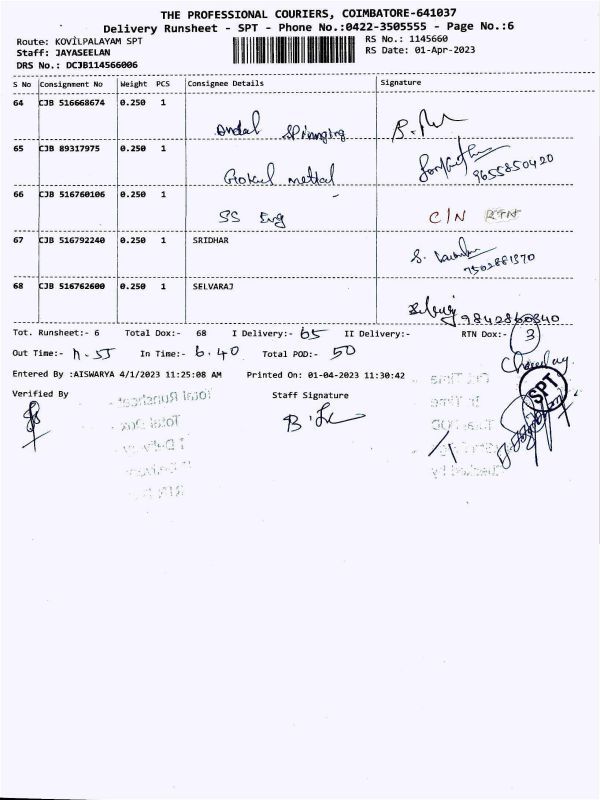 THE PROFESSIONAL COURIERS, COIMBATORE-641037
Delivery Runsheet - SPT - Phone No.:0422-3505555 - Page No.:6
Route: KOVILPALAYAM SPT
RS No.: 1145660
Staff: JAYASEELAN
RS Date: 01-Apr-2023
DRS No.: DCJB114566006
S No Consignment No Weight PCS Consignee Details Signature
64 CJB 516668674 0.250 1
65 CJB 89317975 0.250 1 Gokul mettal
9655850420
66 CJB 516760106 0.250 1 SS Eng C/N RTN
67 CJB 516792240 0.250 1 SRIDHAR
68 CJB 516762600 0.250 1 SELVARAJ
9842860840
Tot. Runsheet:- 6 Total Dox:- 68 I Delivery:- 65 II Delivery:- RTN Dox:- 3
Out Time:- 11.55 In Time:- 6.40 Total POD:- 50
Entered By :AISWARYA 4/1/2023 11:25:08 AM Printed On: 01-04-2023 11:30:42
Verified By Staff Signature
SPT